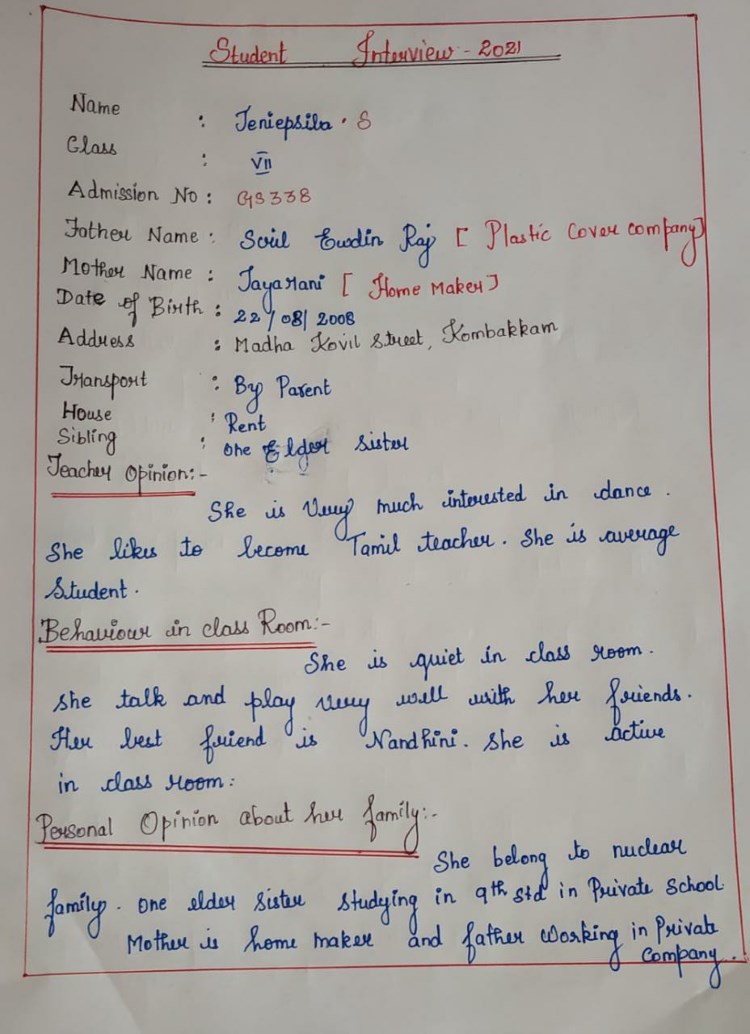 Student Interview - 2021
Name : Jeniepsiba . S
Class : VII
Admission No : GS338
Father Name : Soul Ewdin Raj [ Plastic Cover company]
Mother Name : Jayarani [ Home Maker]
Date of Birth : 22/08/2008
Address : Madha Kovil Street, Kombakkam
Transport : By Parent
House : Rent
Sibling : one Elder sister
Teacher Opinion:-
She is Very much interested in dance.
She likes to become Tamil teacher. She is average
Student.
Behaviour in class Room:-
She is quiet in class room.
she talk and play very well with her friends.
Her best friend is Nandhini. She is active
in class room:
Personal Opinion about her family:-
She belong to nuclear
family. one elder sister studying in 9th std in Private School
Mother is home maker and father working in Private
Company.